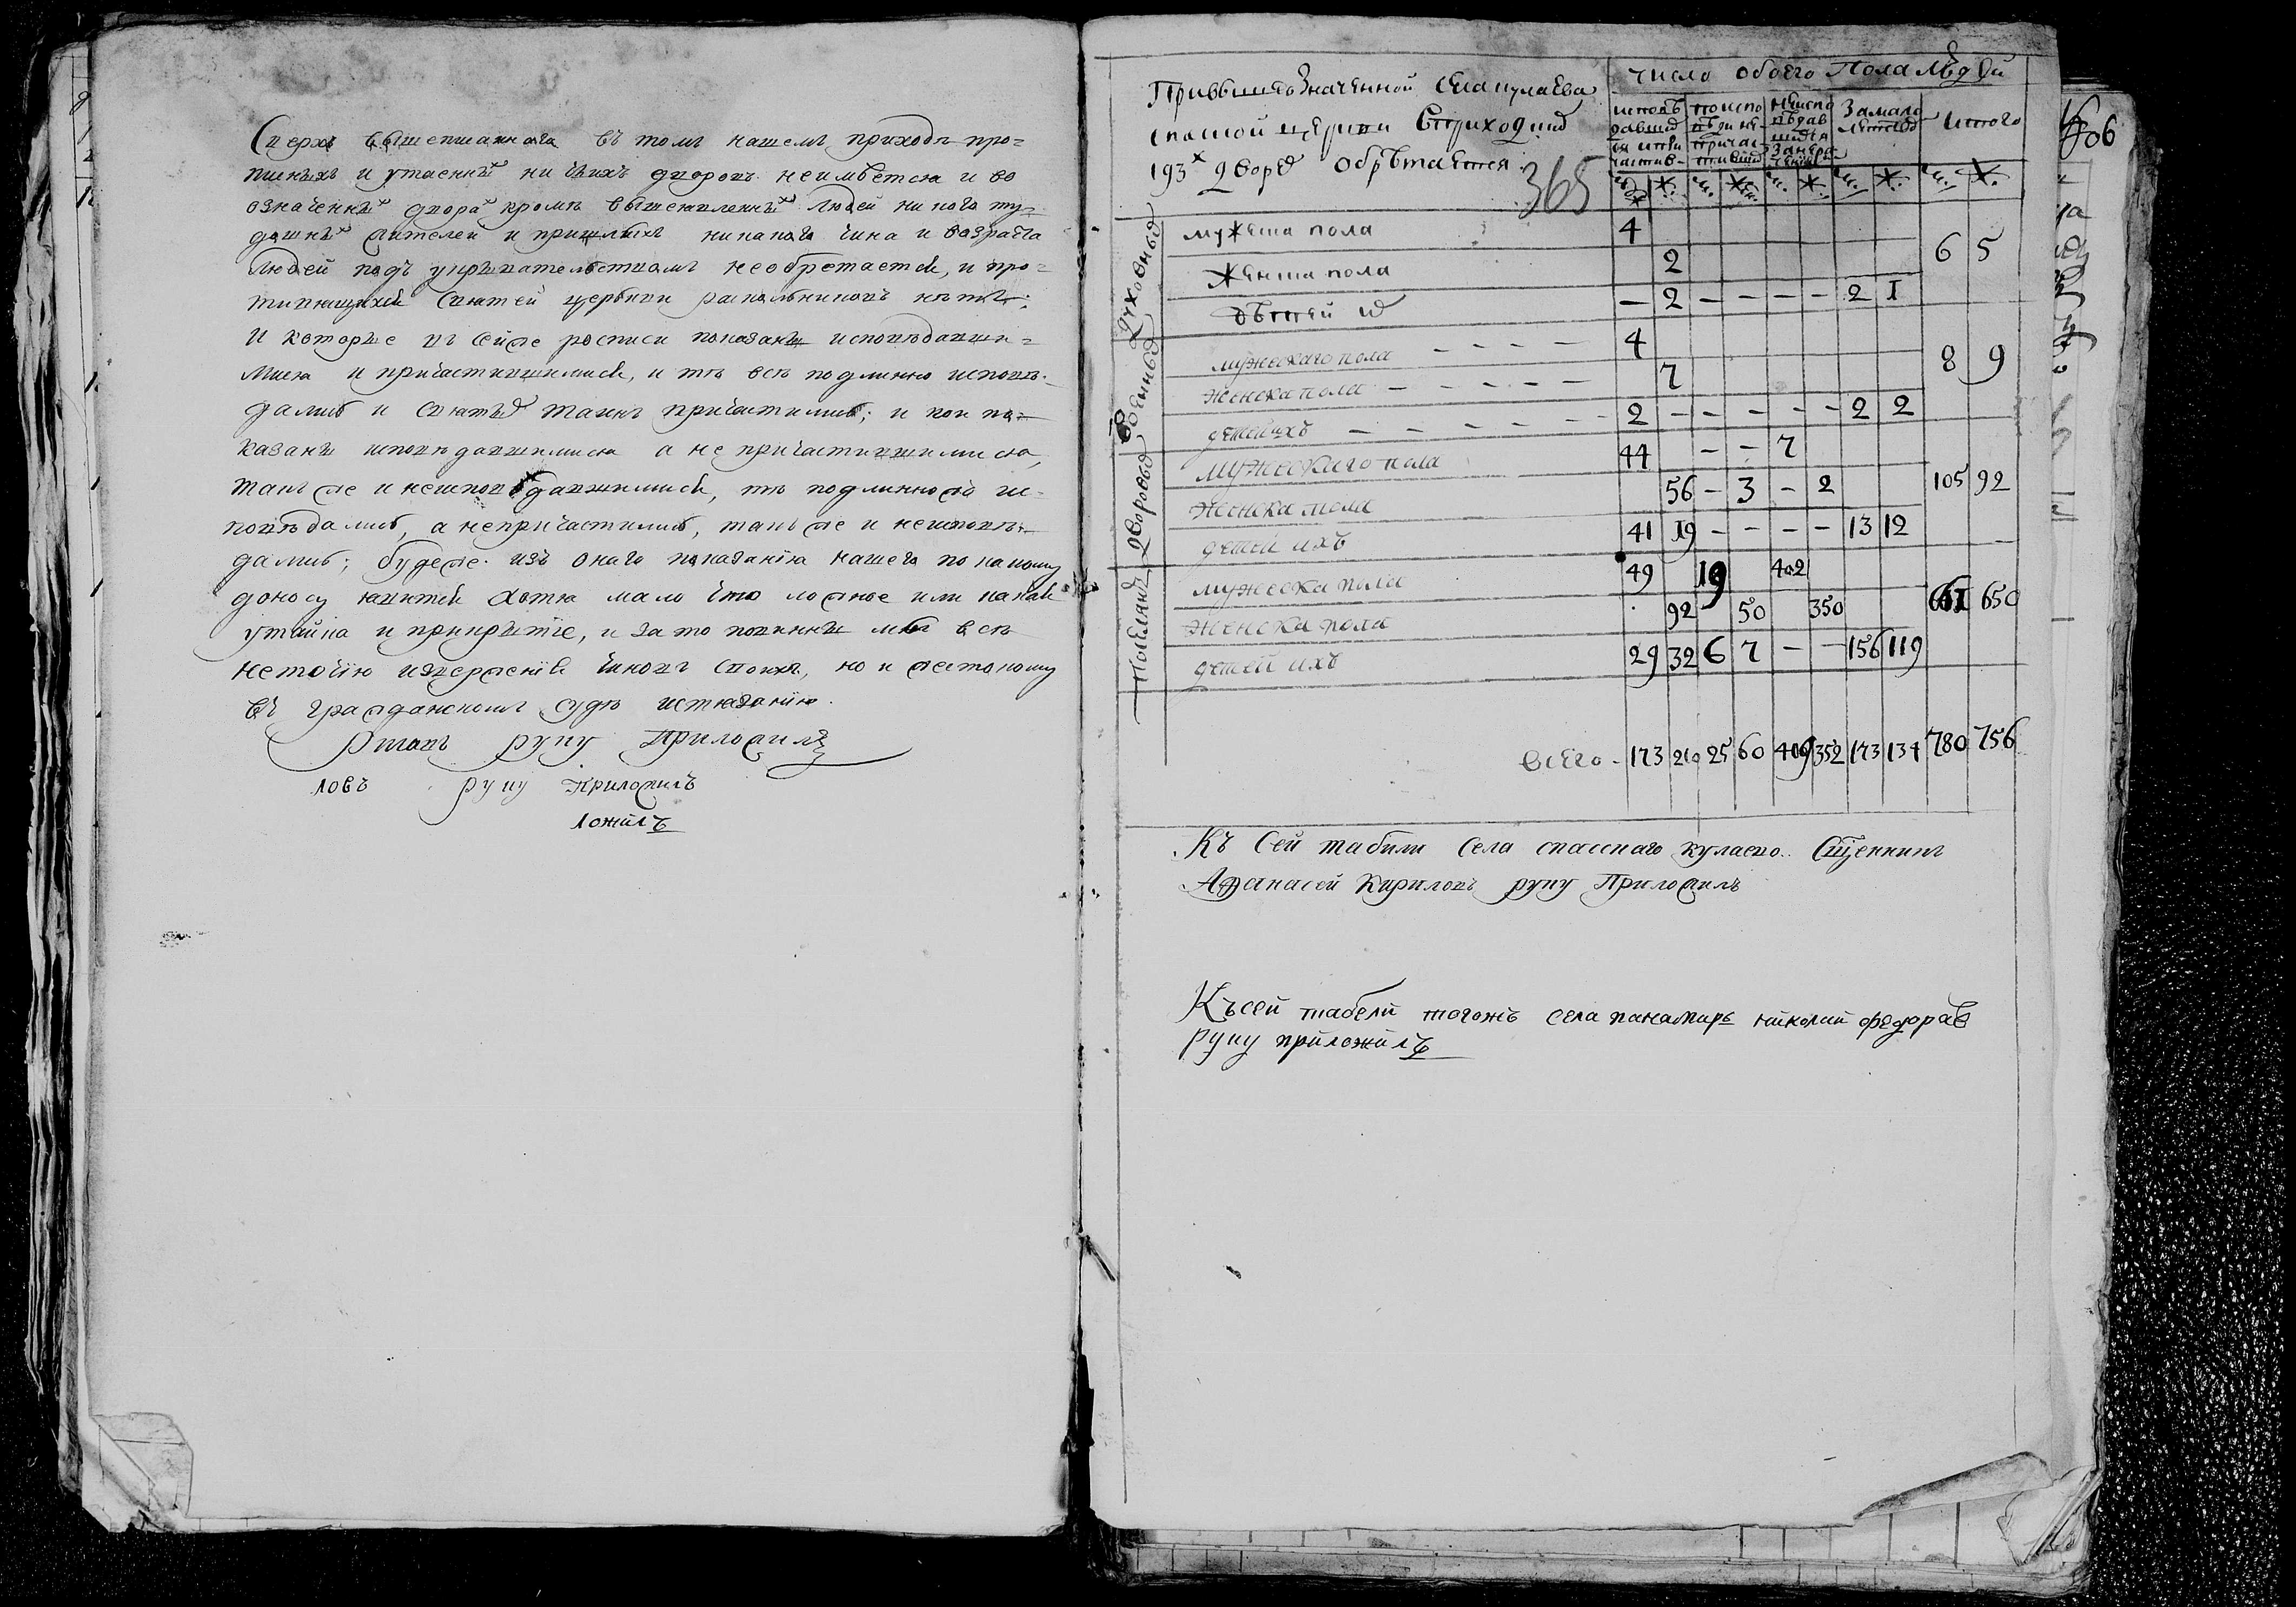 Сверхъ вышеписаннаго въ томъ нашемъ приходѣ про-
писныхъ и утаенныхъ ни чьихъ дворовъ неимѣется и во
означенныхъ дворахъ кромѣ вышеявленныхъ людей ни кого ту-
дошныхъ жителей и пришлыхъ никакого чина и возраста
людей подъ укрывательствомъ необретается, и про-
тивящихся святей церькви раскольниковъ нѣтъ:
И которые въ сейже росписи показаны исповѣдавши-
мися и причастившимися, и тѣ всѣ подлинно исповѣ-
дались и святыхъ таинъ причастились; и кои по-
казаны исповѣдавшимися а не причастившимися,
такъже и неисповѣдавшимися, тѣ подлинножъ ис-
повѣдались, а непричастились, такъже и неисповѣ-
дались; будеже изъ онаго показанія нашего по какому
доносу явится хотя мало что ложное или какая
утайка и прикрытие, и за то повинны мы всѣ
неточію изверженія чиновъ своихъ, но и жестокому
въ гражданскомъ судѣ истязанію.
руку Приложилъ
ловъ руку Приложилъ
ложилъ
При вышеозначенной села кулаева
спаской церкви Вприходипе
193х дворѣ обрѣтается
365
число обоего Пола людей
исповѣдавшихся и причастив-
поисповѣди непричастивших
неисповѣдавшихся
За малолѣтствомъ
итого
м. ж. м. ж. м. ж. м. ж. м. ж.
406
Духовныхъ
мужеска пола 4
6 5
женска пола 2
дѣтей их – 2 – – – – 2 1
Военныхъ
мужескаго пола – – – – 4
8 9
женска пола – – – – – 7
детей ихъ – – – – – – 2 – – – – – 2 2
Дворовыхъ
мужескаго пола 44 – – 7
женска пола 56 – 3 – 2
105 92
детей ихъ 41 19 – – – – 13 12
Поселянъ
мужеска пола 49 19 402
женска пола 92 50 350
661 650
детей ихъ 29 32 6 7 – – 156 119
всего – 173 210 25 60 409 352 173 134 780 756
Къ сей табели села спаскаго кулаево.. Сщенникъ
Афанасей Кириловъ руку Приложилъ
Къ сей табели тогожъ села панамарь николай федоравъ
руку приложилъ